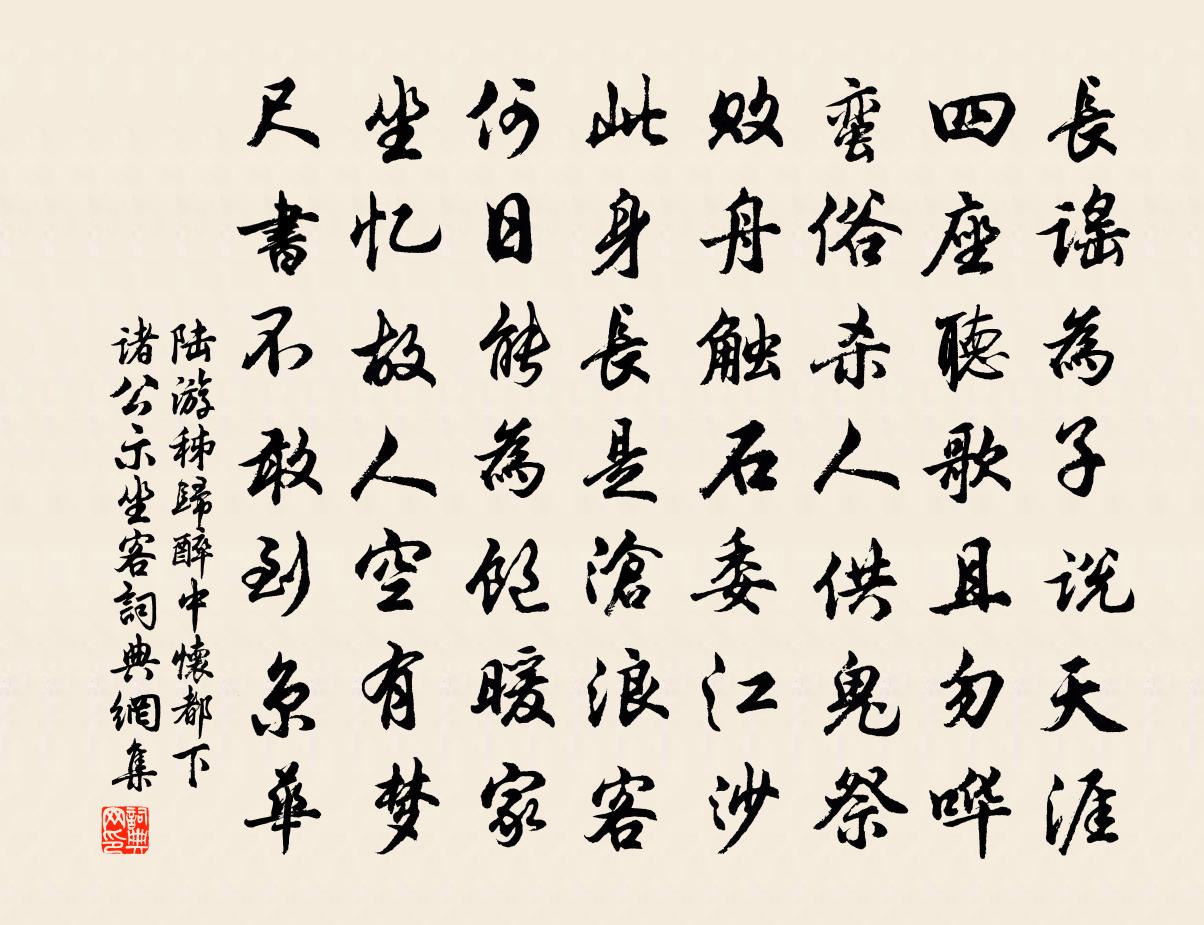 長謡為子说天涯
四座聽歌且勿哗
蛮俗杀人供鬼祭
败舟触石委江沙
此身長是滄浪客
何日能為饱暖家
坐忆故人空有梦
尺書不敢到京華
陆游秭歸醉中懷都下
诸公示坐客詞典網集
詞典网印